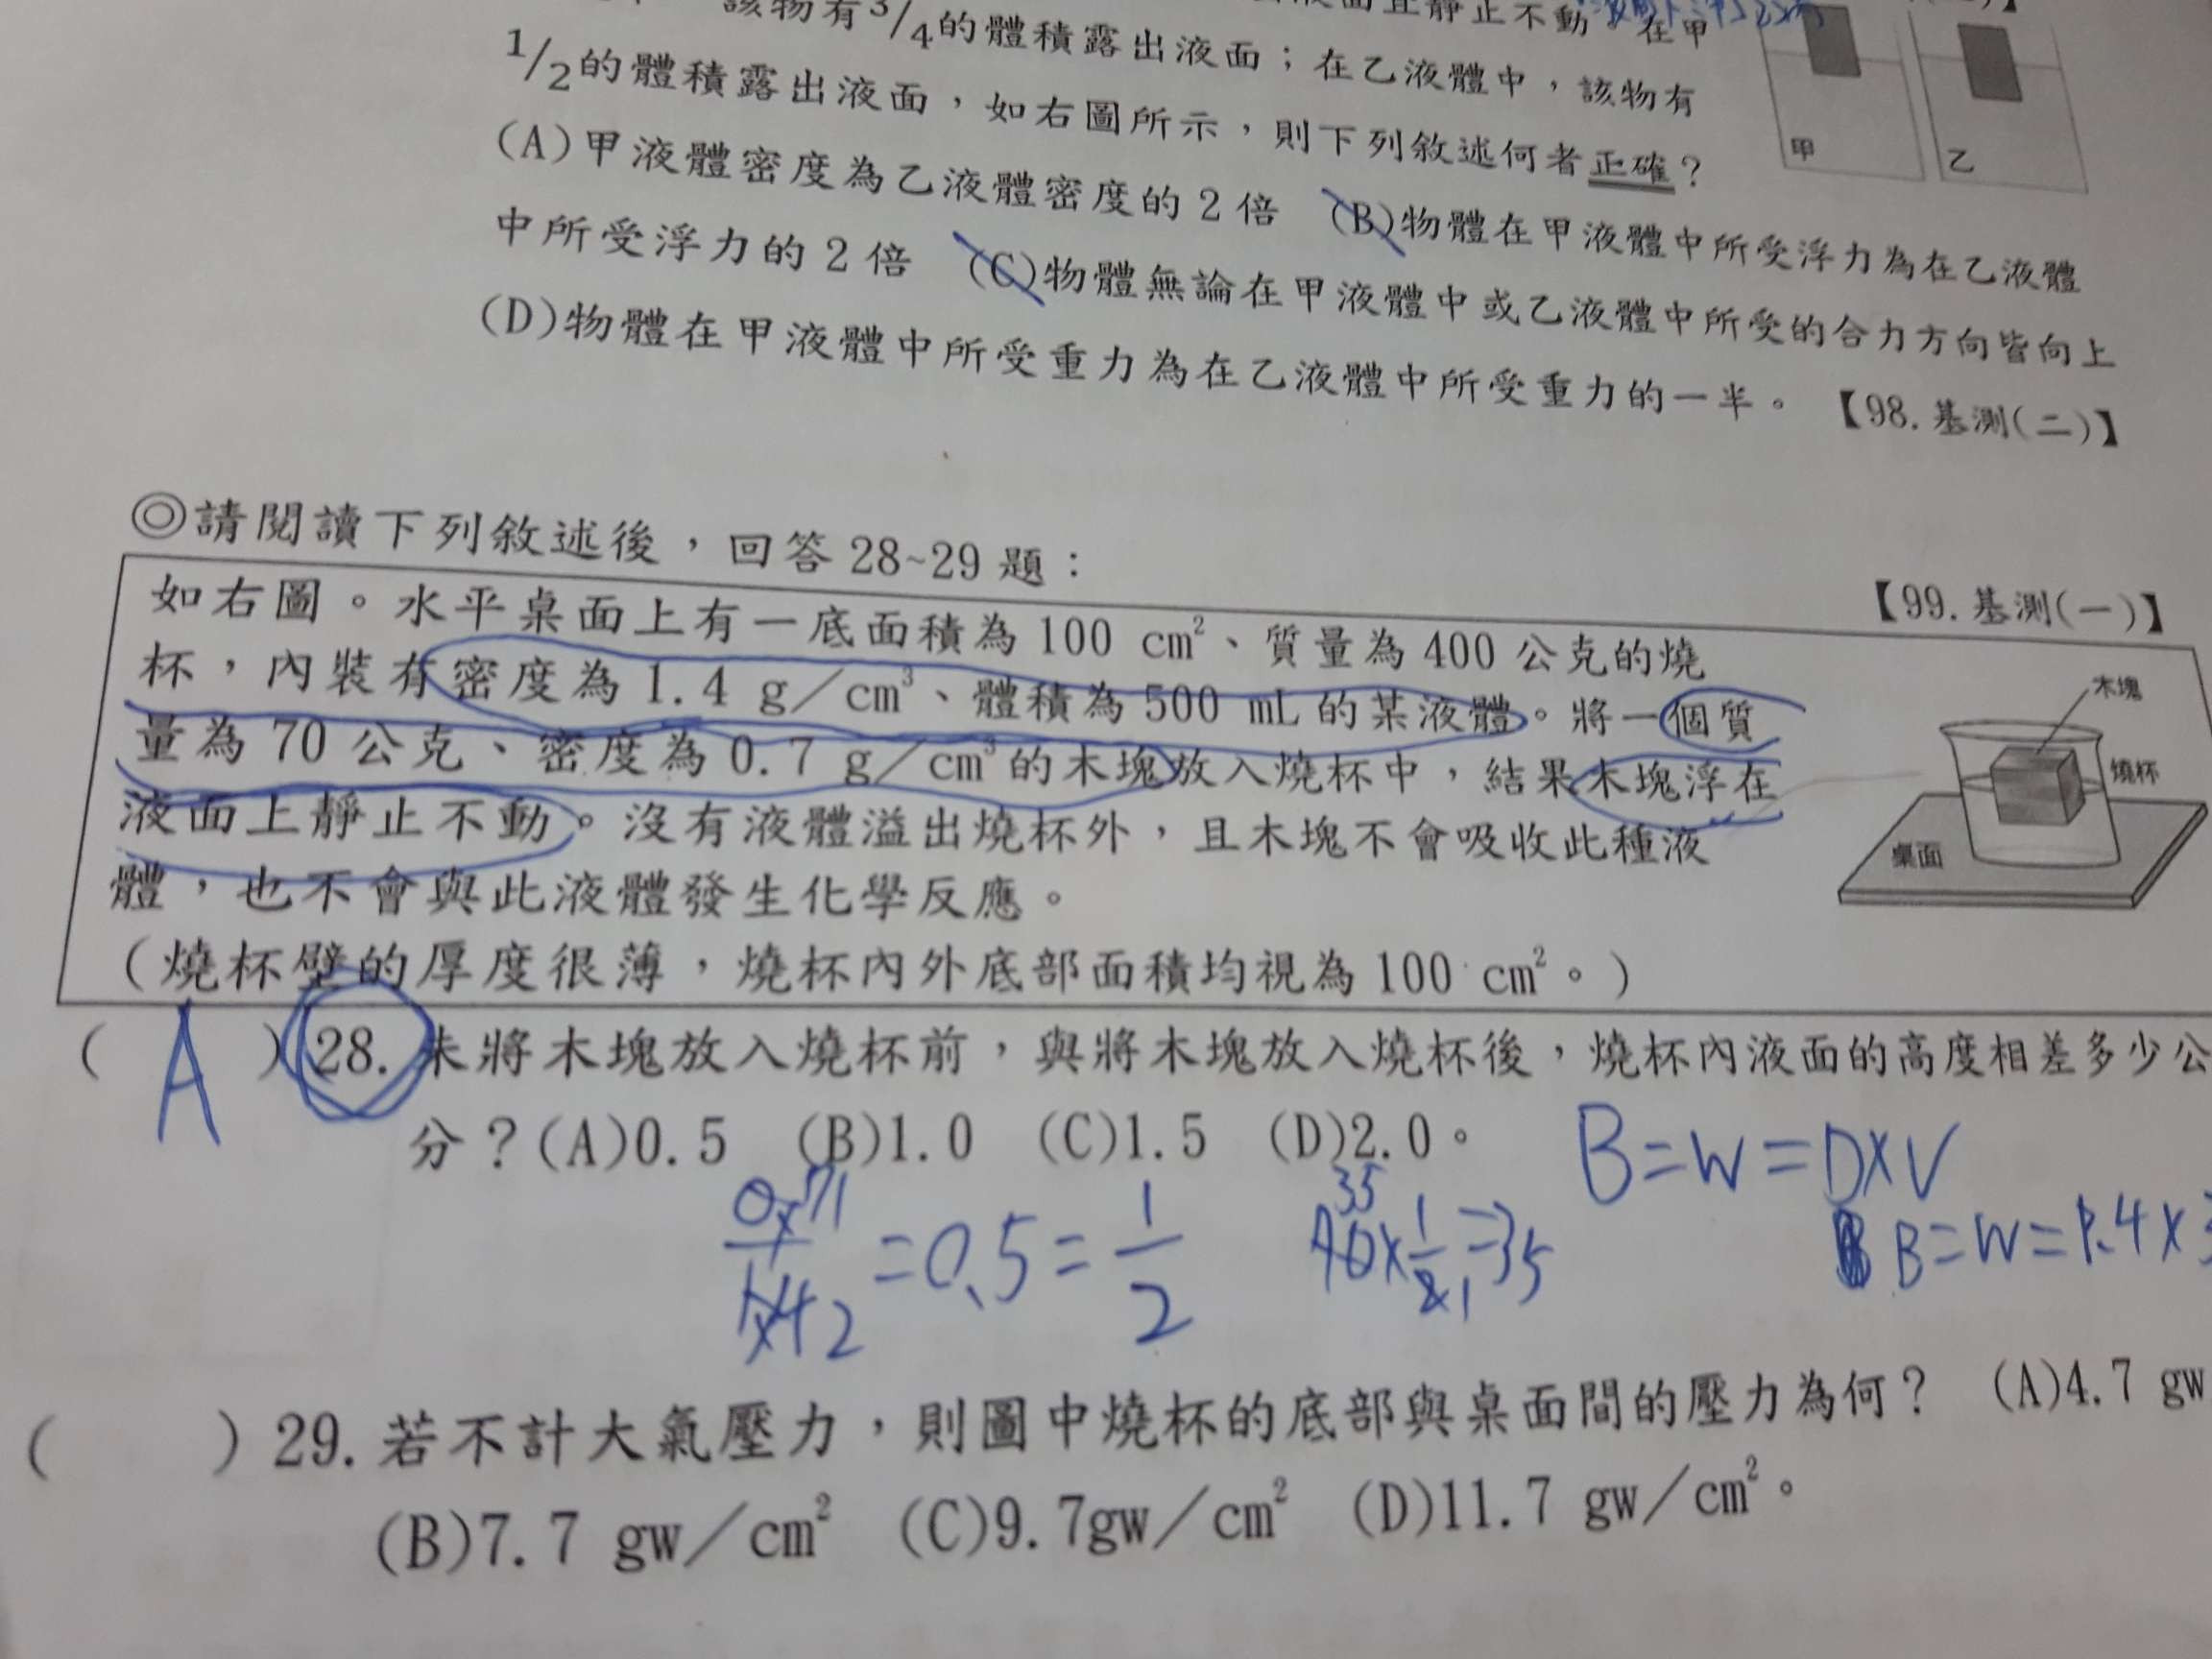 該物有3/4的體積露出液面；在乙液體中，該物有
1/2的體積露出液面，如右圖所示，則下列敘述何者正確？
甲
乙
(A)甲液體密度為乙液體密度的2倍 (B)物體在甲液體中所受浮力為在乙液體
中所受浮力的2倍 (C)物體無論在甲液體中或乙液體中所受的合力方向皆向上
(D)物體在甲液體中所受重力為在乙液體中所受重力的一半。【98.基測(二)】
◎請閱讀下列敘述後，回答28~29題：
【99.基測(一)】
如右圖。水平桌面上有一底面積為100 cm²、質量為400公克的燒
杯，內裝有密度為1.4 g／cm³、體積為500 mL的某液體。將一個質
量為70公克、密度為0.7 g／cm³的木塊放入燒杯中，結果木塊浮在
液面上靜止不動。沒有液體溢出燒杯外，且木塊不會吸收此種液
體，也不會與此液體發生化學反應。
（燒杯壁的厚度很薄，燒杯內外底部面積均視為100 cm²。）
木塊
燒杯
桌面
( A )28.未將木塊放入燒杯前，與將木塊放入燒杯後，燒杯內液面的高度相差多少公
分？(A)0.5 (B)1.0 (C)1.5 (D)2.0。
B=W=D×V
=0.5=1/2
B=W=1.4×
( )29.若不計大氣壓力，則圖中燒杯的底部與桌面間的壓力為何？ (A)4.7 gw
(B)7.7 gw／cm² (C)9.7gw／cm² (D)11.7 gw／cm²。